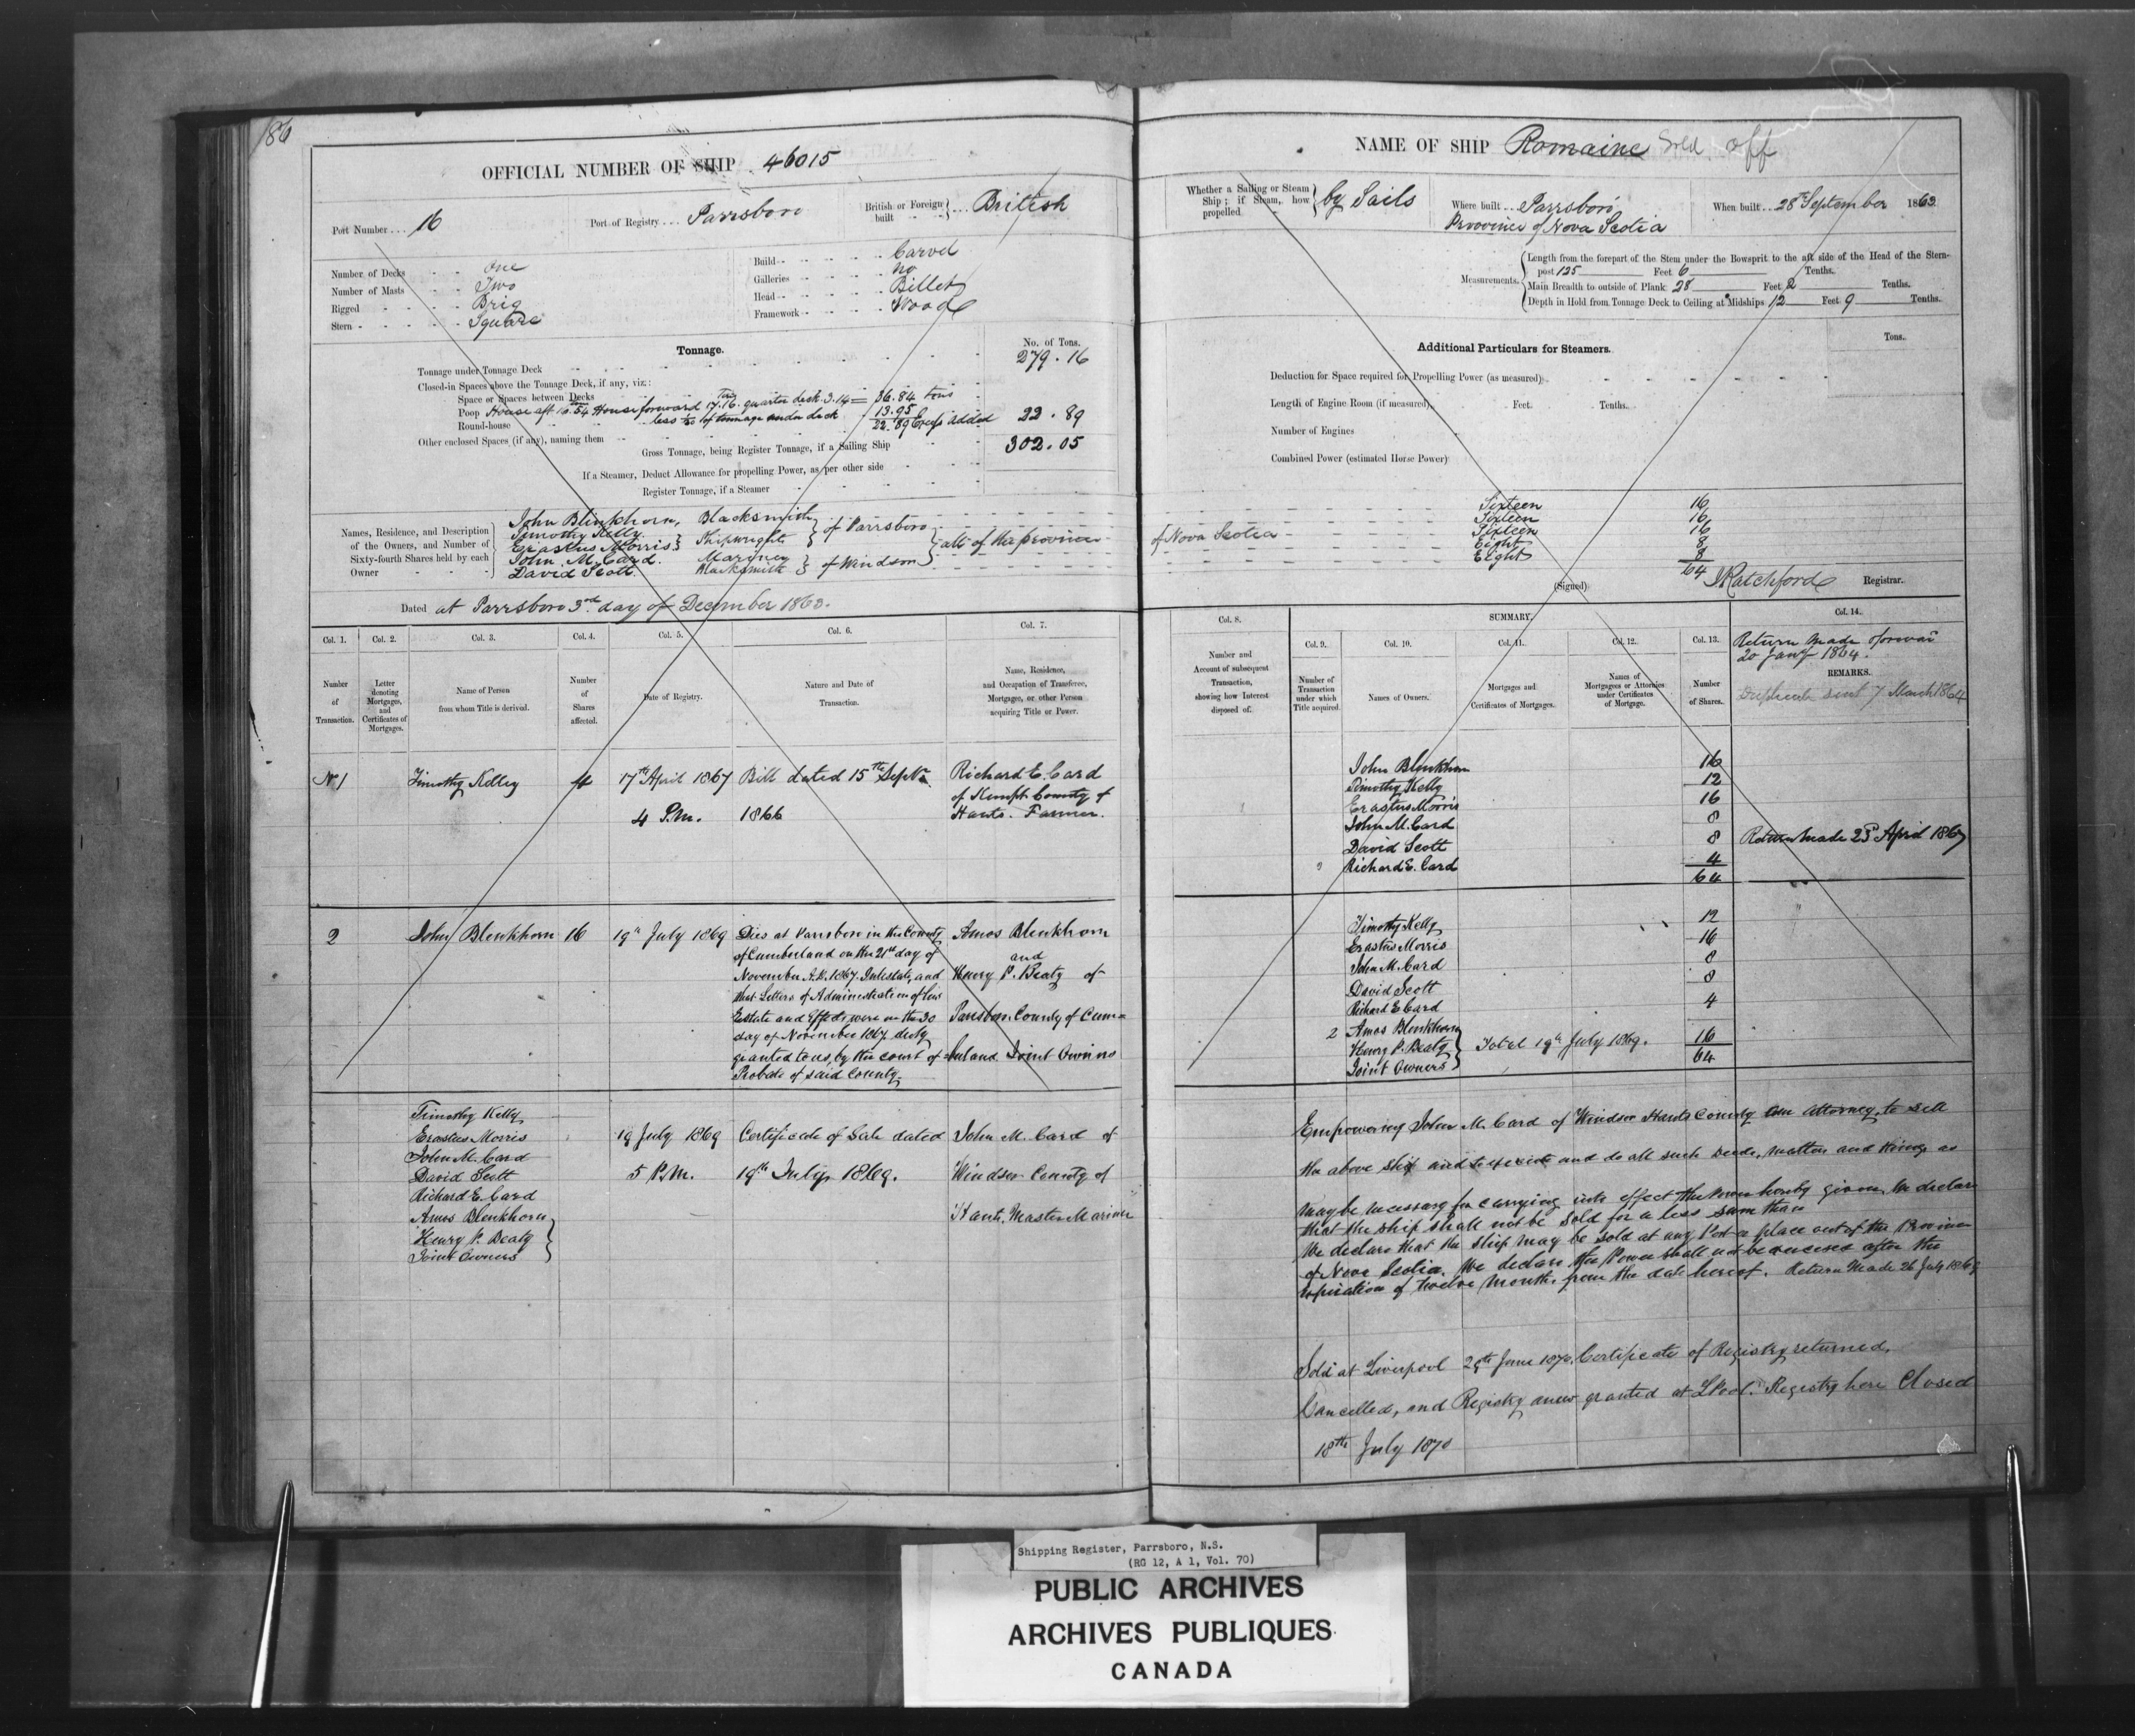 186
OFFICIAL NUMBER OF SHIP 46015
Port Number ... 16
Port of Registry ... Parrsboro
British or Foreign built ... British
Number of Decks - - One
Number of Masts - - Two
Rigged - - - - Brig
Stern - - - - - Square
Build - - - - - Carvel
Galleries - - - - no
Head - - - - - Billet
Framework - - - - Wood
Tonnage.
No. of Tons.
Tonnage under Tonnage Deck 279.16
Closed-in Spaces above the Tonnage Deck, if any, viz.:
Space or Spaces between Decks
Poop House aft 16.54 House forward 17.16. quarter deck 3.14 = 36.84 tons
Round-house less 1/20 of tonnage under deck 13.95
22.89 Excess added 22.89
Other enclosed Spaces (if any), naming them
Gross Tonnage, being Register Tonnage, if a Sailing Ship 302.05
If a Steamer, Deduct Allowance for propelling Power, as per other side
Register Tonnage, if a Steamer
Names, Residence, and Description of the Owners, and Number of Sixty-fourth Shares held by each Owner
John Blinkhorn, Blacksmith
Timothy Kelly
Erastus Morris } Shipwrights } of Parrsboro
John M. Card. Mariner
David Scott. Blacksmith } of Windsor } all of the province
Dated at Parrsboro 3rd day of December 1863.
Col. 1. Col. 2. Col. 3. Col. 4. Col. 5. Col. 6. Col. 7.
Number of Transaction.
Letter denoting Mortgages, and Certificates of Mortgages.
Name of Person from whom Title is derived.
Number of Shares affected.
Date of Registry.
Nature and Date of Transaction.
Name, Residence, and Occupation of Transferee, Mortgagee, or other Person acquiring Title or Power.
No 1 Timothy Kelley 4 17th April 1867 Bill dated 15th Septr Richard E. Card
of Kempt County of
4 P.M. 1866 Hants. Farmer.
2 John Blenkhorn 16 19th July 1869 Dies at Parrsboro in the County Amos Blenkhorn
of Cumberland on the 21st day of and
November A.D. 1867. Intestate, and Henry P. Beaty of
that Letters of Administration of his
Estate and Effects were on the 30 Parrsboro County of Cum=
day of November 1867 duly
granted to us, by the court of berland Joint Owners
Probate of said County.
Timothy Kelly
Erastus Morris 19 July 1869 Certificate of Sale dated John M. Card of
John M. Card
David Scott 5 P.M. 19th July 1869. Windsor County of
Richard E. Card
Amos Blenkhorn Hants, Master Mariner
Henry P. Beaty
Joint Owners
NAME OF SHIP Romaine Sold off
Whether a Sailing or Steam Ship; if Steam, how propelled by Sails
Where built .. Parrsboro
Province of Nova Scotia
When built .. 28th September 1863
Measurements.
Length from the forepart of the Stem under the Bowsprit to the aft side of the Head of the Stern-
post 125 Feet 6 Tenths.
Main Breadth to outside of Plank 28 Feet 2 Tenths.
Depth in Hold from Tonnage Deck to Ceiling at Midships 12 Feet 9 Tenths.
Additional Particulars for Steamers.
Tons.
Deduction for Space required for Propelling Power (as measured)
Length of Engine Room (if measured) Feet. Tenths.
Number of Engines
Combined Power (estimated Horse Power)
Sixteen 16
Sixteen 16
of Nova Scotia Sixteen 16
Eight 8
Eight 8
64
(Signed) J Ratchford Registrar.
Col. 8.
SUMMARY.
Col. 14.
Col. 9. Col. 10. Col. 11. Col. 12. Col. 13.
Return made
20 Jany 1864.
REMARKS.
Duplicate sent 7 March 1864
Number and Account of subsequent Transaction, showing how Interest disposed of.
Number of Transaction under which Title acquired.
Names of Owners.
Mortgages and Certificates of Mortgages.
Names of Mortgagees or Attornies under Certificates of Mortgage.
Number of Shares.
John Blinkhorn 16
Timothy Kelly 12
Erastus Morris 16
John M. Card 8
David Scott 8 Return made 23rd April 1867
Richard E. Card 4
64
Timothy Kelly 12
Erastus Morris 16
John M. Card 8
David Scott 8
Richard E Card 4
2 Amos Blenkhorn
Henry P. Beaty } 19th July 1869. 16
Joint Owners 64
Empowering John M. Card of Windsor Hants County our Attorney, to sell
the above ship and to execute and do all such Deeds, matters and things as
may be necessary for carrying into effect the Power hereby given, We declare
that the ship shall not be sold for a less sum than
We declare that the ship may be sold at any Port or place out of the Province
of Nova Scotia. We declare the Power shall not be exercised after the
expiration of twelve Months from the date hereof. Return Made 26 July 1869
Sold at Liverpool 29th June 1870. Certificate of Registry returned,
Cancelled, and Registry anew granted at L'Pool. Registry here Closed
18th July 1870
Shipping Register, Parrsboro, N.S.
(RG 12, A 1, Vol. 70)
PUBLIC ARCHIVES
ARCHIVES PUBLIQUES
CANADA